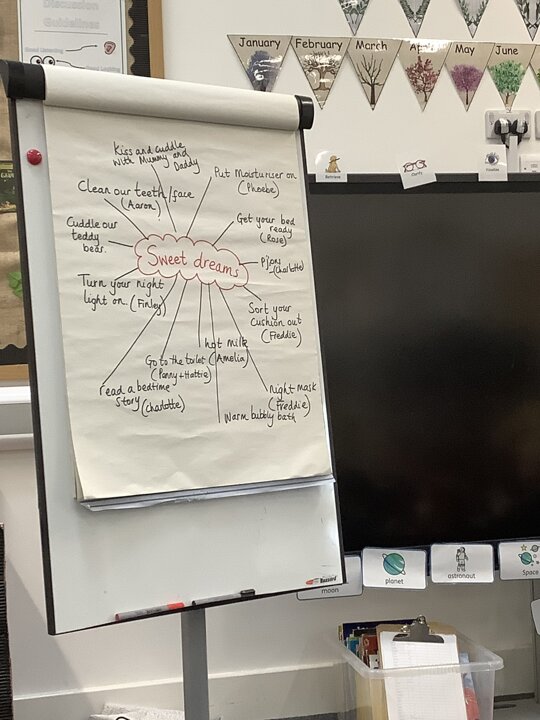 Discussion
Guidelines
January
February
March
May
June
Kiss and cuddle
with Mummy and
Daddy
Put Moisturiser on
(Phoebe)
Clean our teeth/face
(Aaron)
Get your bed
ready
(Rose)
Cuddle our
teddy
bear.
Sweet dreams
PJ's on
(Charlotte)
Turn your night
light on. (Finley)
Sort your
cushion out
(Freddie)
hot milk
(Amelia)
Go to the toilet
(Penny + Hattie)
read a bedtime
story (Charlotte)
night mask
(Freddie)
Warm bubbly bath
Retrieve
Clarify
moon
planet
astronaut
Space